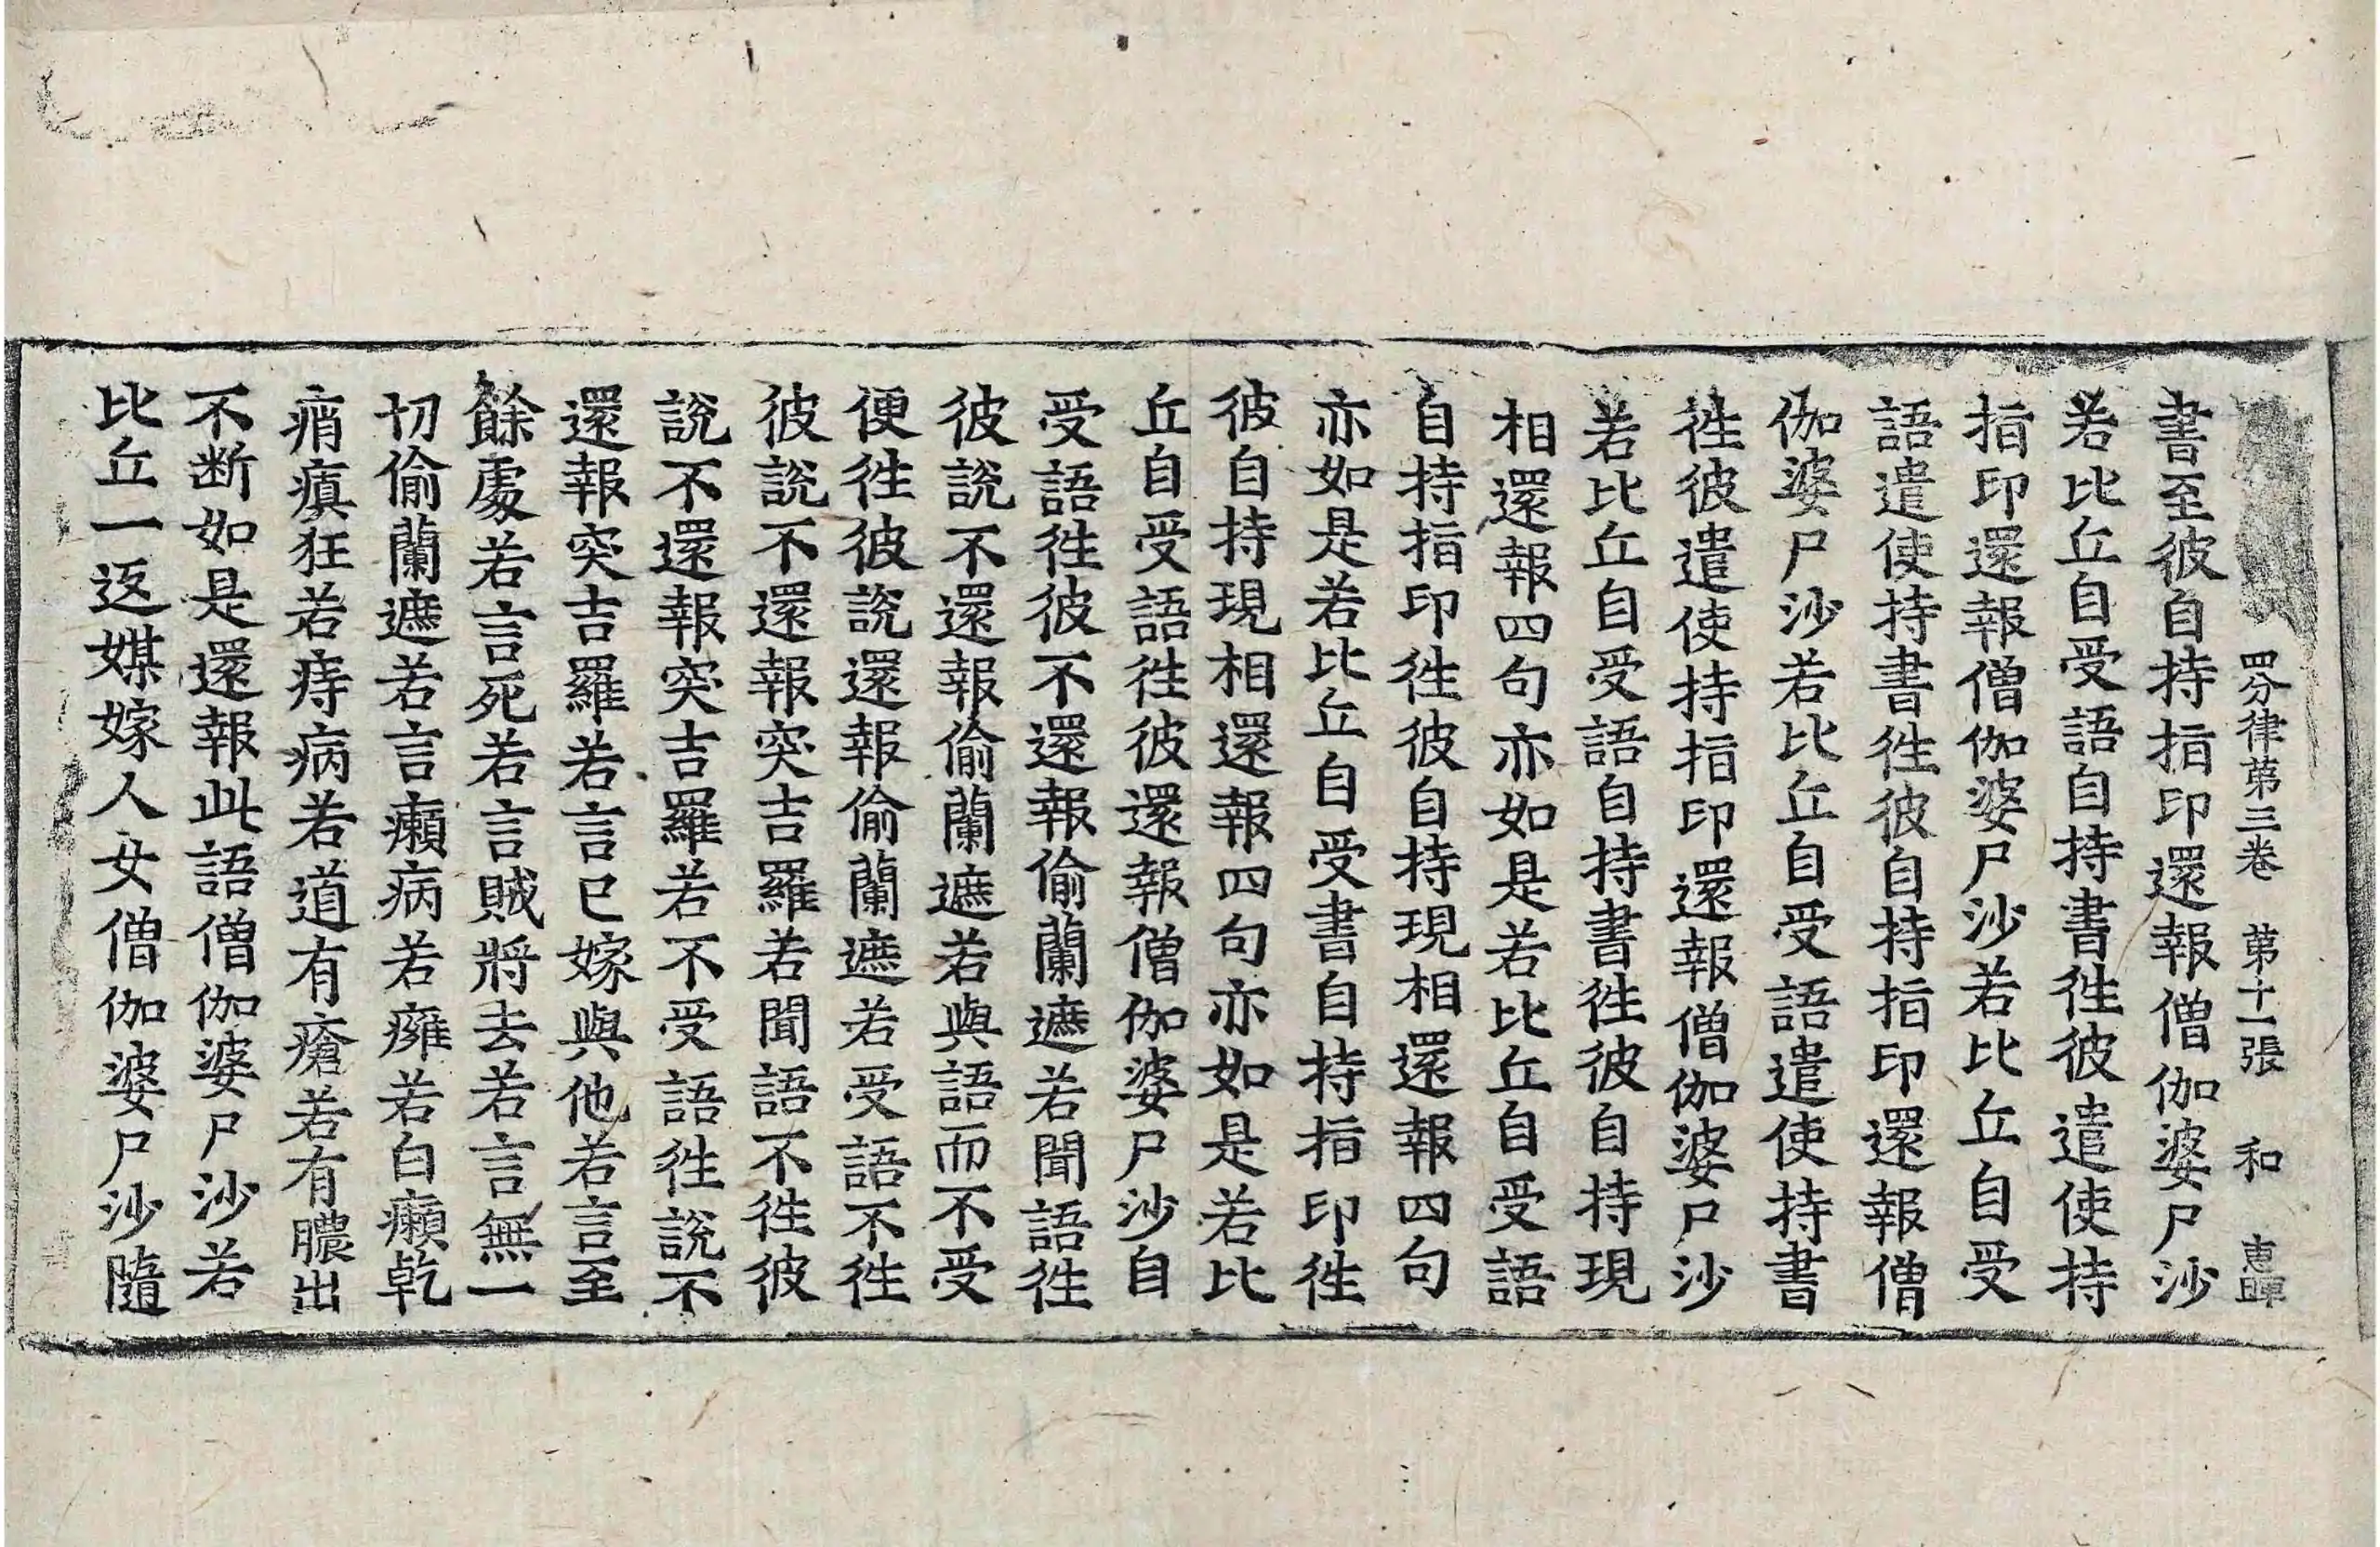 四分律苐三卷 苐十一張 和 惠暉
書至彼自持指印還報僧伽婆尸沙
若比丘自受語自持書徃彼遣使持
指印還報僧伽婆尸沙若比丘自受
語遣使持書徃彼自持指印還報僧
伽婆尸沙若比丘自受語遣使持書
徃彼遣使持指印還報僧伽婆尸沙
若比丘自受語自持書徃彼自持現
相還報四句亦如是若比丘自受語
自持指印徃彼自持現相還報四句
亦如是若比丘自受書自持指印徃
彼自持現相還報四句亦如是若比
丘自受語徃彼還報僧伽婆尸沙自
受語徃彼不還報偷蘭遮若聞語徃
彼說不還報偷蘭遮若與語而不受
便徃彼說還報偷蘭遮若受語不徃
彼說不還報突吉羅若聞語不徃彼
說不還報突吉羅若不受語徃說不
還報突吉羅若言已嫁與他若言至
餘處若言死若言賊將去若言無一
切偷蘭遮若言癩病若癰若白癩乾
痟瘨狂若痔病若道有瘡若有膿出
不断如是還報此語僧伽婆尸沙若
比丘一返媒嫁人女僧伽婆尸沙隨